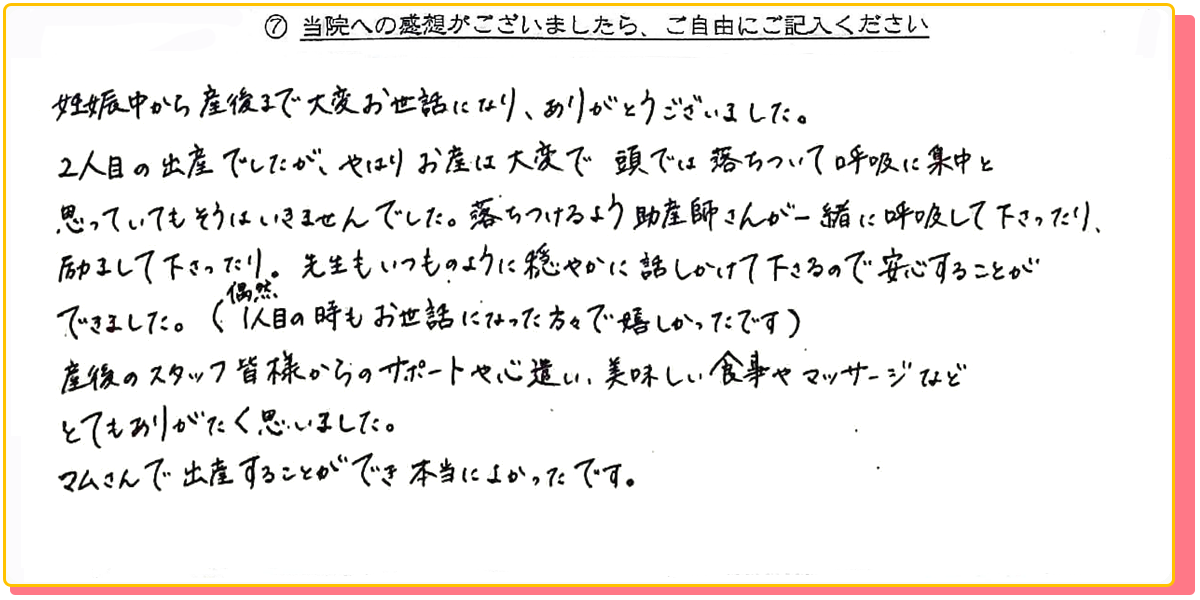 ⑦ 当院への感想がございましたら、ご自由にご記入ください
妊娠中から産後まで大変お世話になり、ありがとうございました。
2人目の出産でしたが、やはりお産は大変で 頭では落ちついて呼吸に集中と
思っていてもそうはいきませんでした。落ちつけるよう助産師さんが一緒に呼吸して下さったり、
励まして下さったり。先生もいつものように穏やかに話しかけて下さるので安心することが
できました。(偶然1人目の時もお世話になった方々で嬉しかったです)
産後のスタッフ皆様からのサポートや心遣い、美味しい食事やマッサージなど
とてもありがたく思いました。
マムさんで出産することができ本当によかったです。